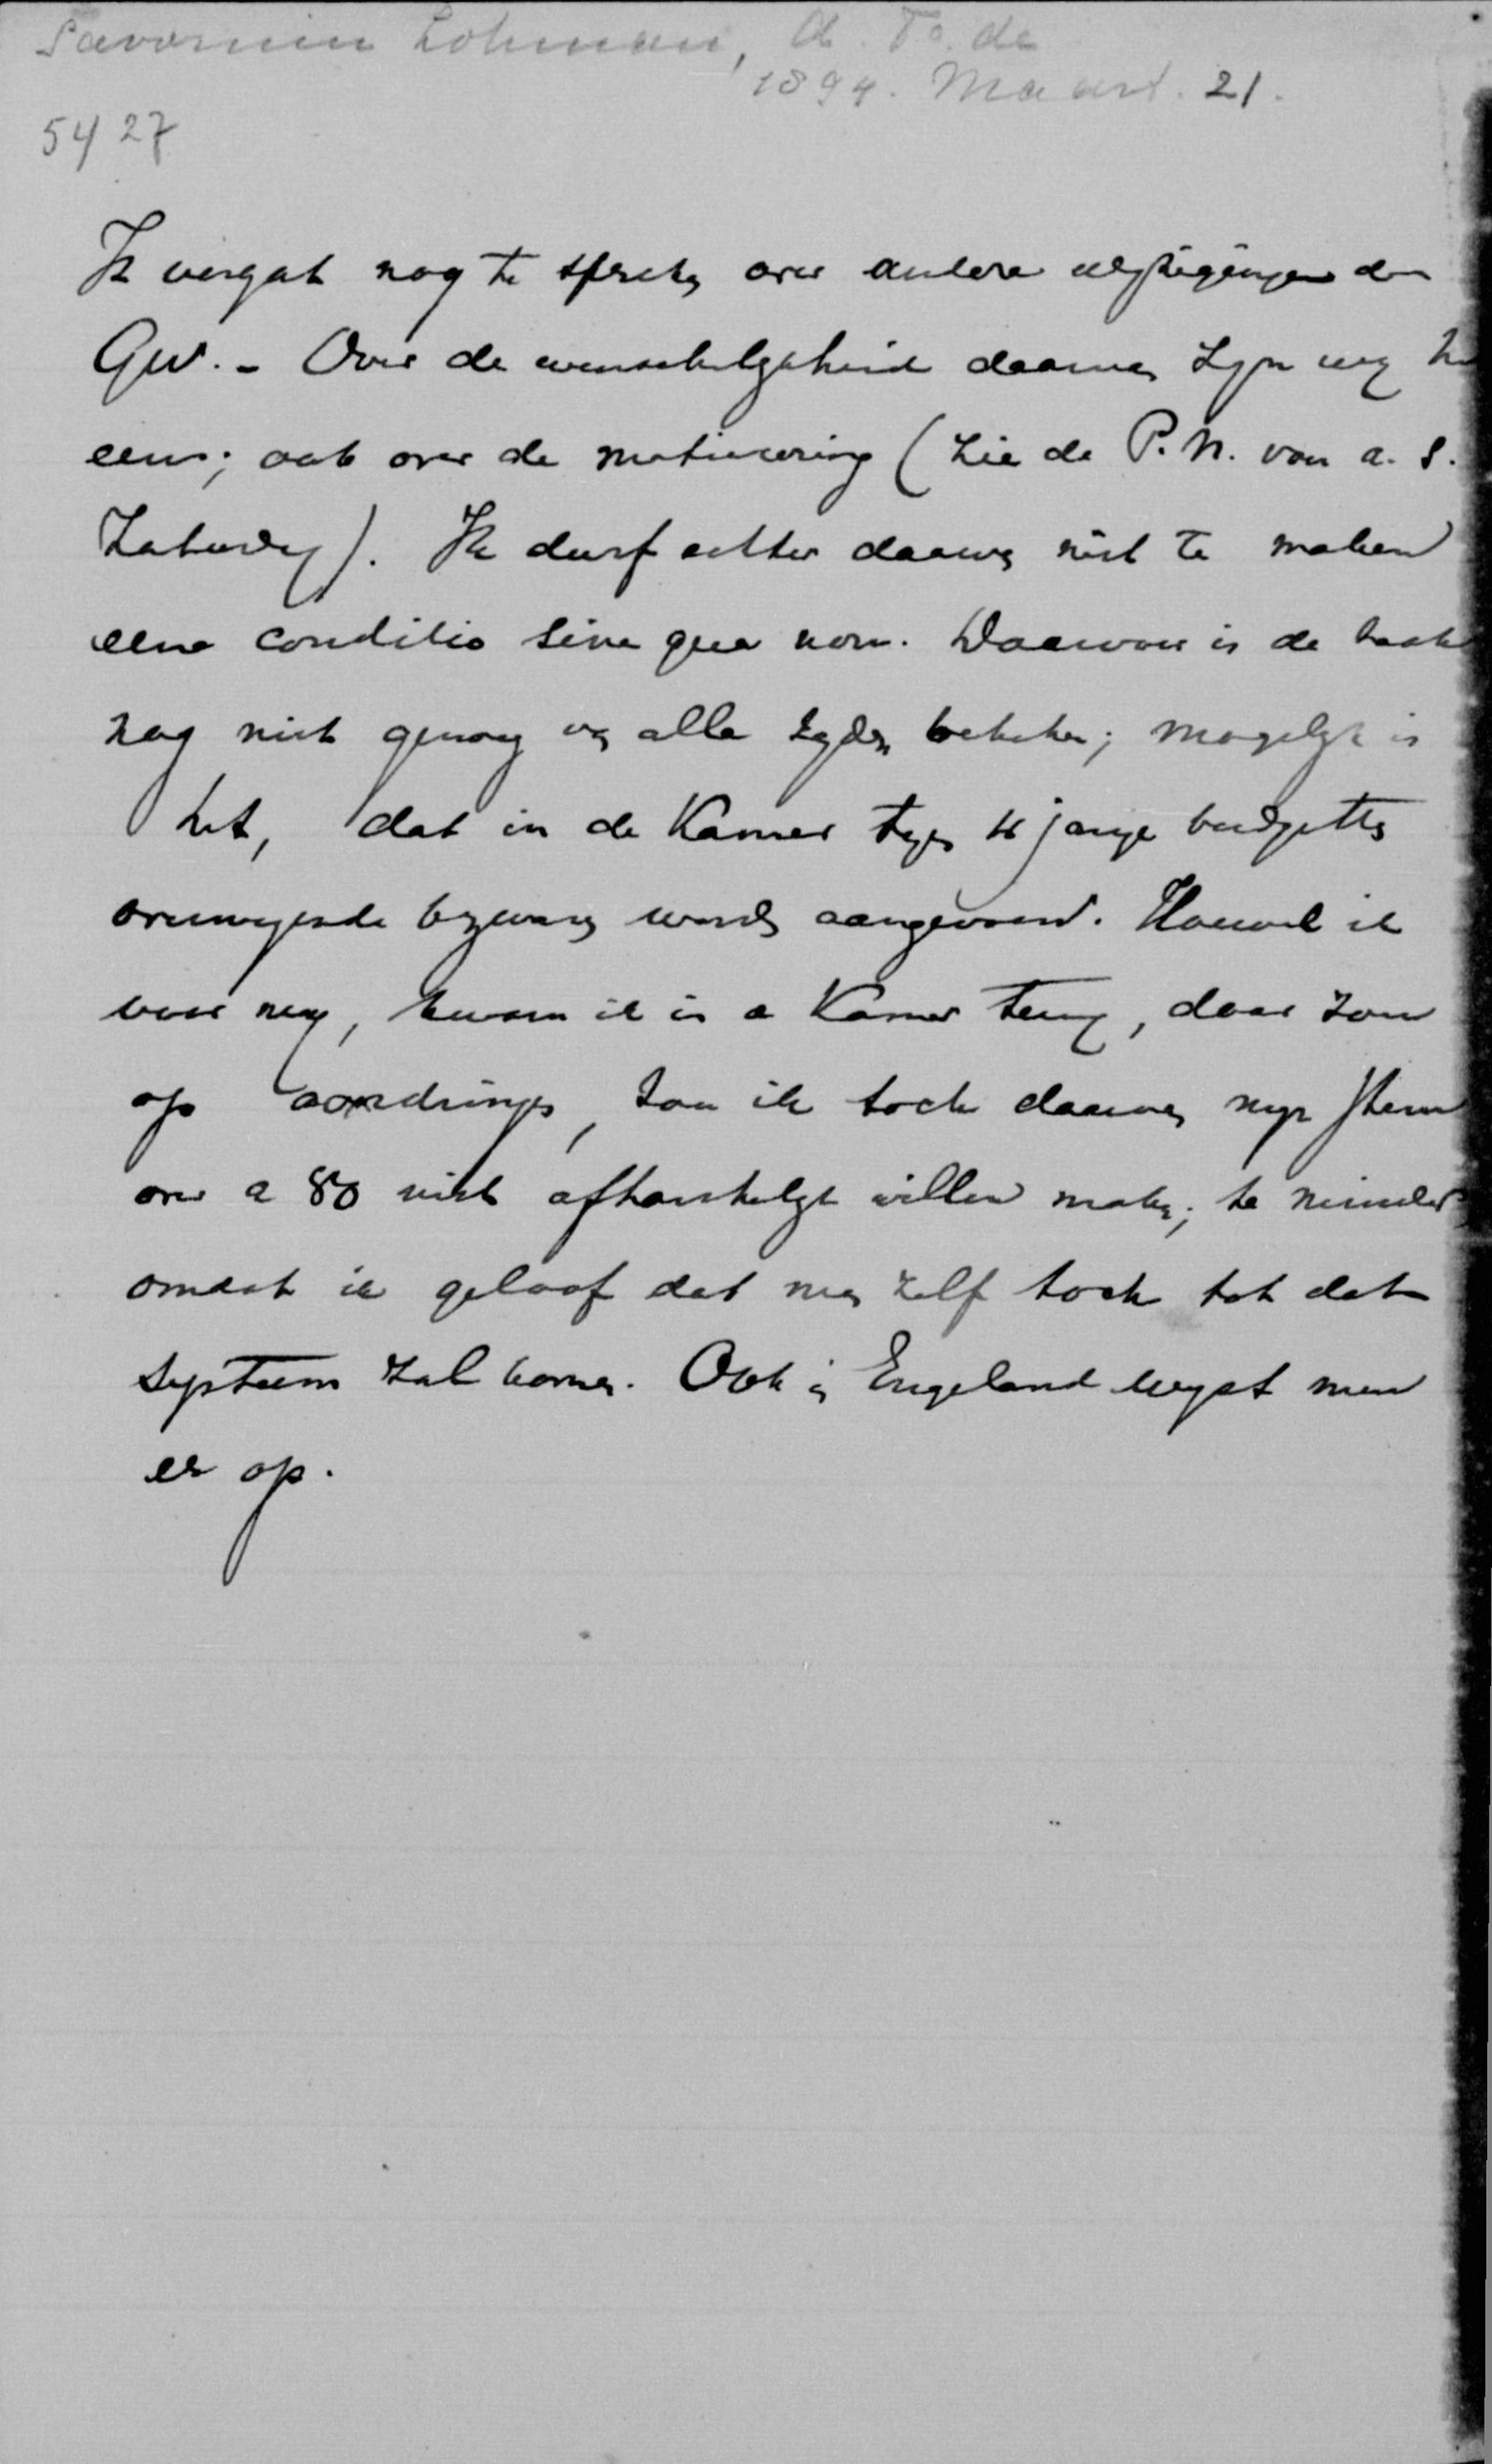 Savornin Lohman, A. F. de
1894. Maart. 21.
5427
Ik vergat nog te spreken over andere wijzigingen der
Gw. - Over de wenschelijkheid daarvan zijn wij het
eens; ook over de motiveering (zie de P. N. van a. s.
Zaturdag). Ik durf echter daarvan niet te maken
eene conditio sine qua non. Daarvoor is de zaak
nog niet genoeg van alle zijden bekeken; mogelijk is
het, dat in de Kamer tegen 4 jarige budgetten
overwegende bezwaren worden aangevoerd. Hoewel ik
voor mij, kwam ik in de Kamer terug, daar zou
op aandringen, zou ik toch daarvan mijn stem
over a 80 niet afhankelijk willen maken; te minder
omdat ik geloof dat men zelf toch tot dat
systeem zal komen. Ook in Engeland wijst men
er op.